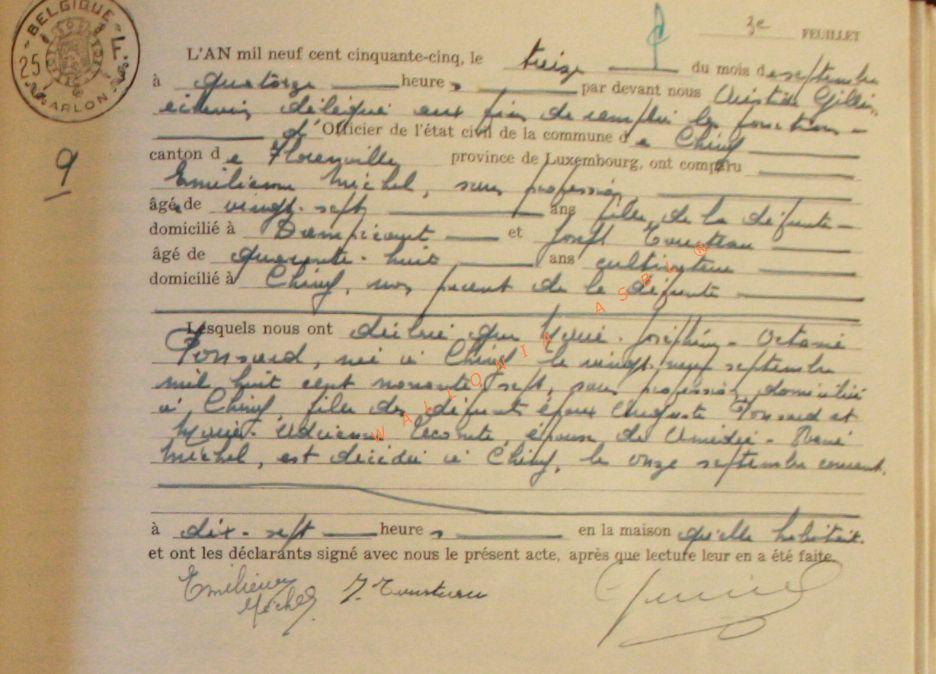 BELGIQUE
25
ARLON
3e FEUILLET
L'AN mil neuf cent cinquante-cinq, le treize du mois de septembre
à quatorze heures par devant nous Christian Gillin,
échevin délégué aux fins de remplir les fonctions
d'Officier de l'état civil de la commune de Chiny
9
canton de Florenville province de Luxembourg, ont comparu
Emilienne Michel, sans profession
âgée de vingt-sept ans fille de la défunte
domicilié à Dampicourt et Joseph
âgé de quarante-huit ans cultivateur
domicilié à Chiny, non parent de la défunte
Lesquels nous ont déclaré que Marie-Joséphine-Octavie
Ponsard, née à Chiny le vingt-neuf septembre
mil huit cent nonante sept, sans profession, domiciliée
à Chiny, fille des défunts époux Auguste Ponsard et
Marie-Adrienne Lecomte, épouse de Amédée-René
Michel, est décédée à Chiny, le onze septembre courant.
WALLONIA ASBL ©
à dix-sept heures en la maison qu'elle habitait.
et ont les déclarants signé avec nous le présent acte, après que lecture leur en a été faite.
Emilienne
Michel